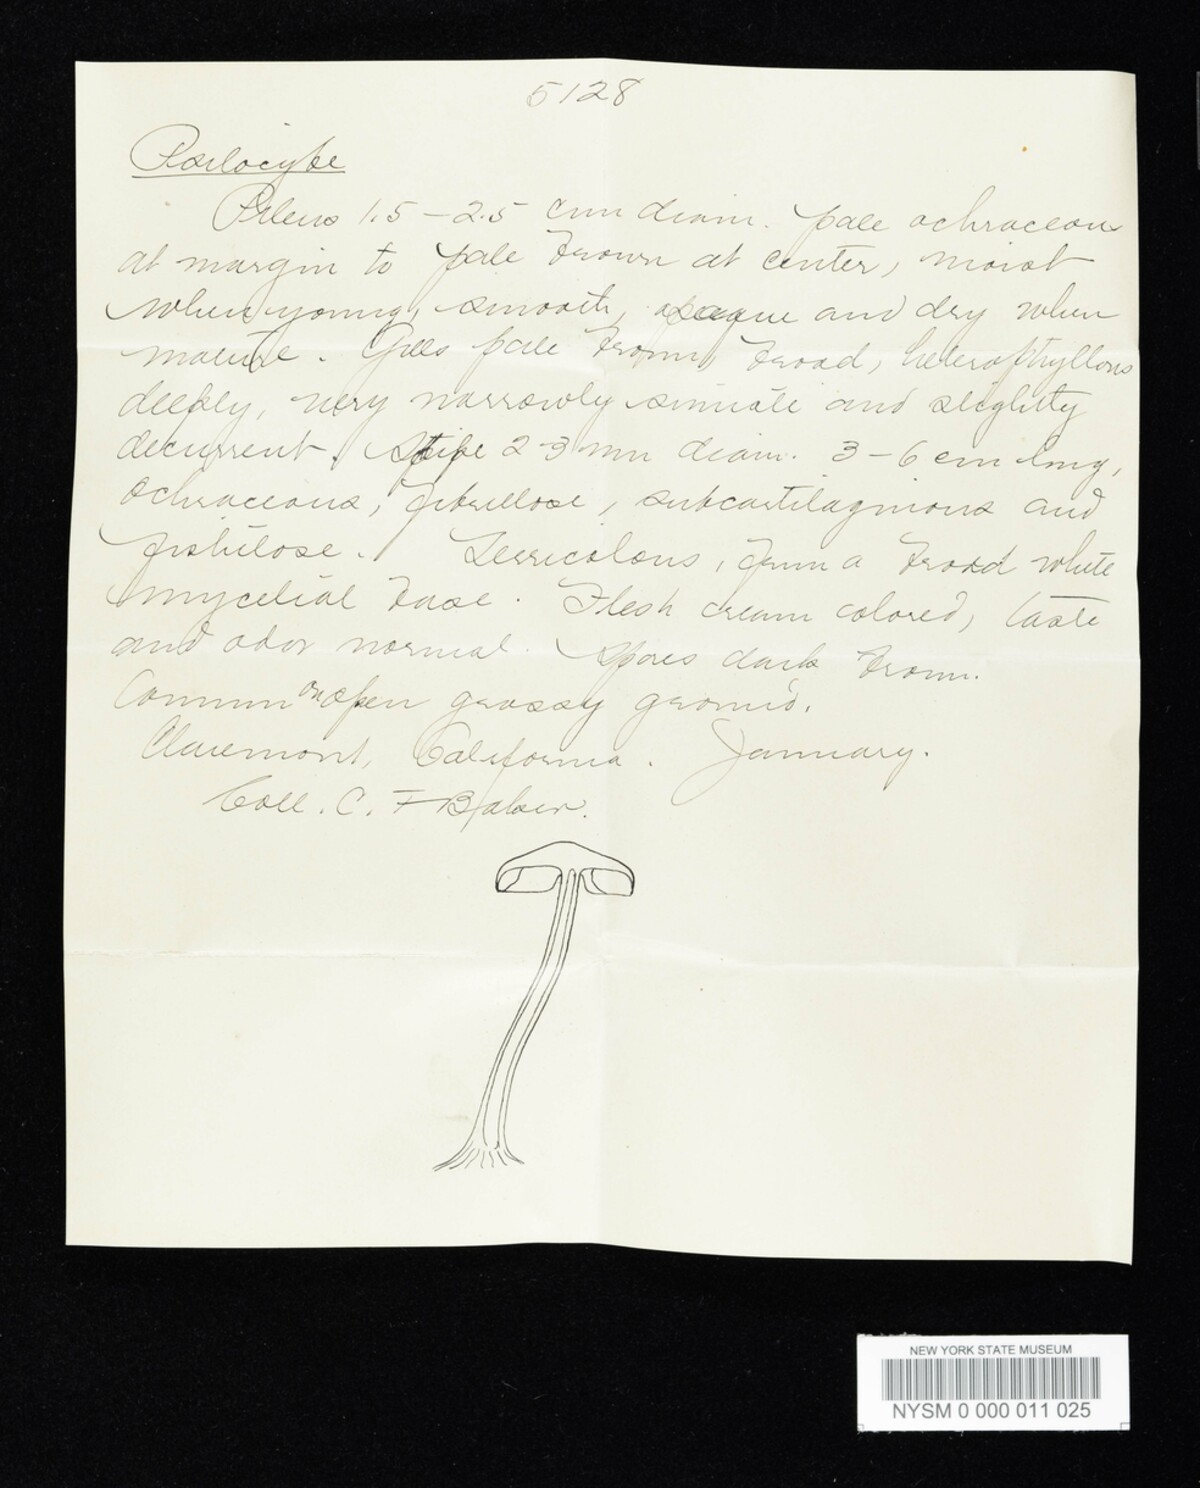 5128
Psilocybe
Pileus 1.5 – 2.5 cm diam. pale ochraceous
at margin to pale brown at center, moist
when young, smooth, opaque and dry when
mature. Gills pale brown, broad, heterophyllous
deeply, very narrowly sinuate and slightly
decurrent. Stipe 2-3 mm diam. 3-6 cm long,
ochraceous, fibrillose, subcartilaginous and
fistulose. Terricolous, from a broad white
mycelial base. Flesh cream colored, taste
and odor normal. Spores dark brown.
Common on open grassy ground.
Claremont, California. January.
Coll. C. F Baker.
NEW YORK STATE MUSEUM
NYSM 0 000 011 025